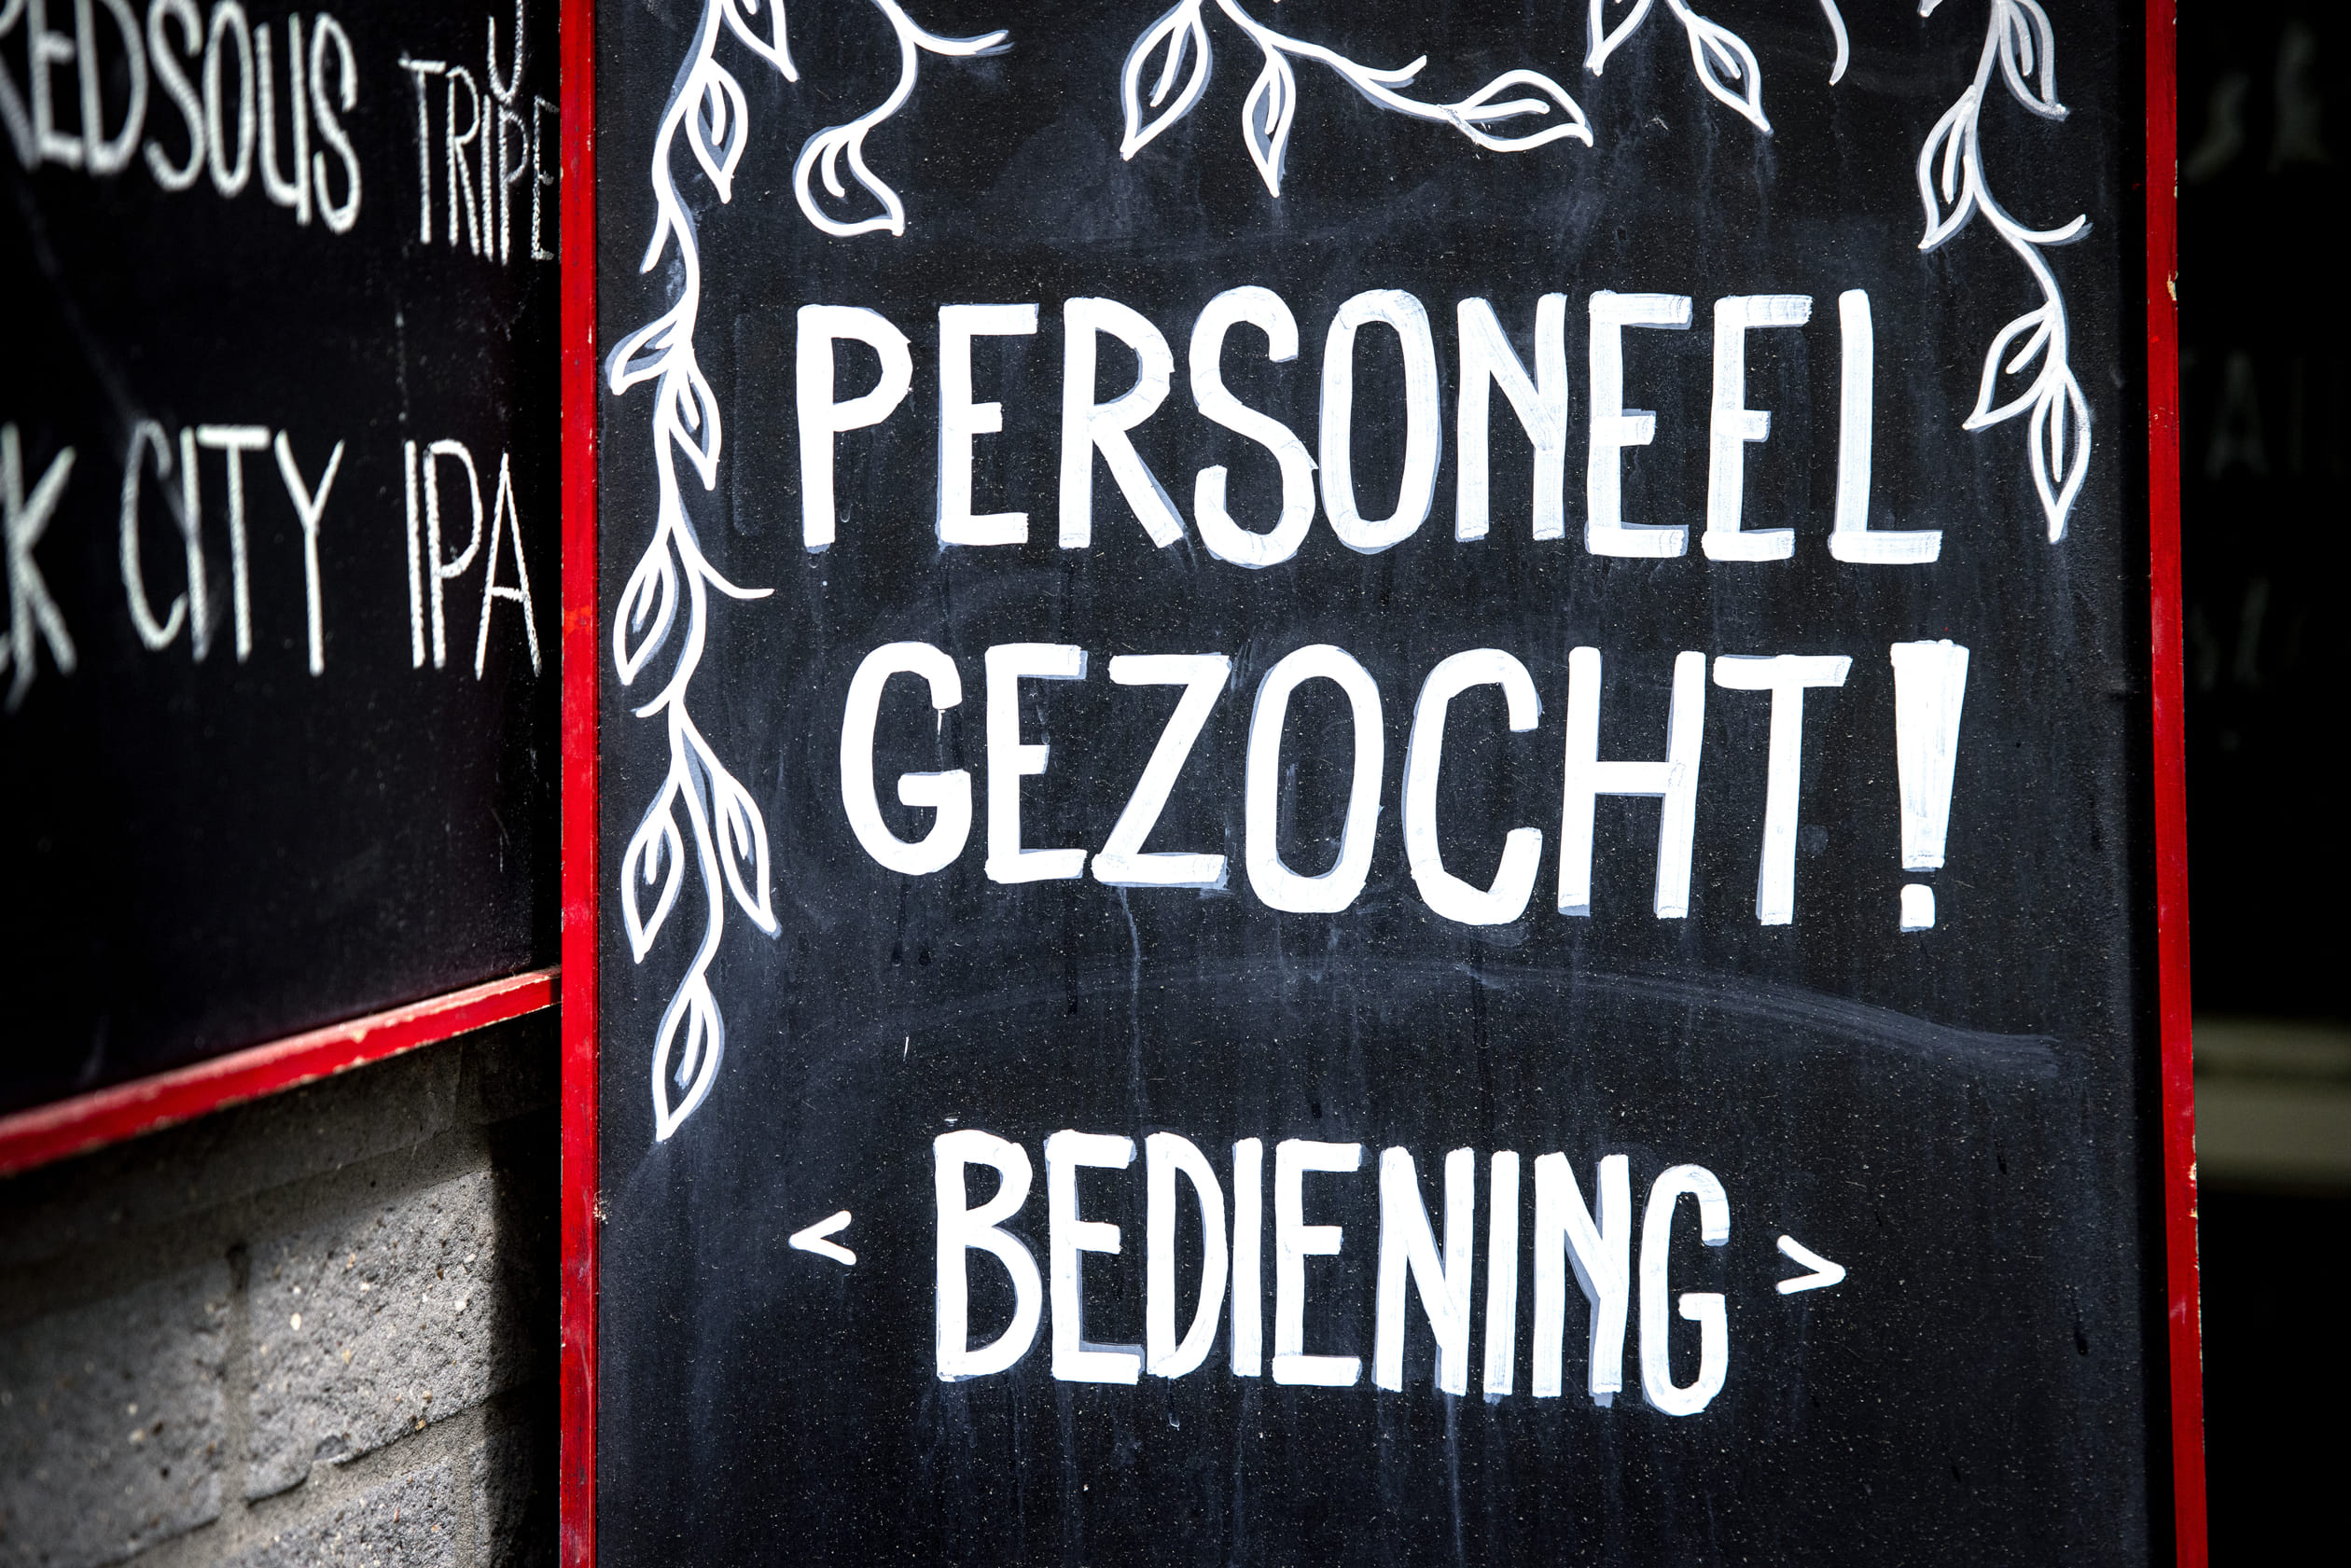 TRIPE
CITY IPA
PERSONEEL
GEZOCHT!
< BEDIENING >